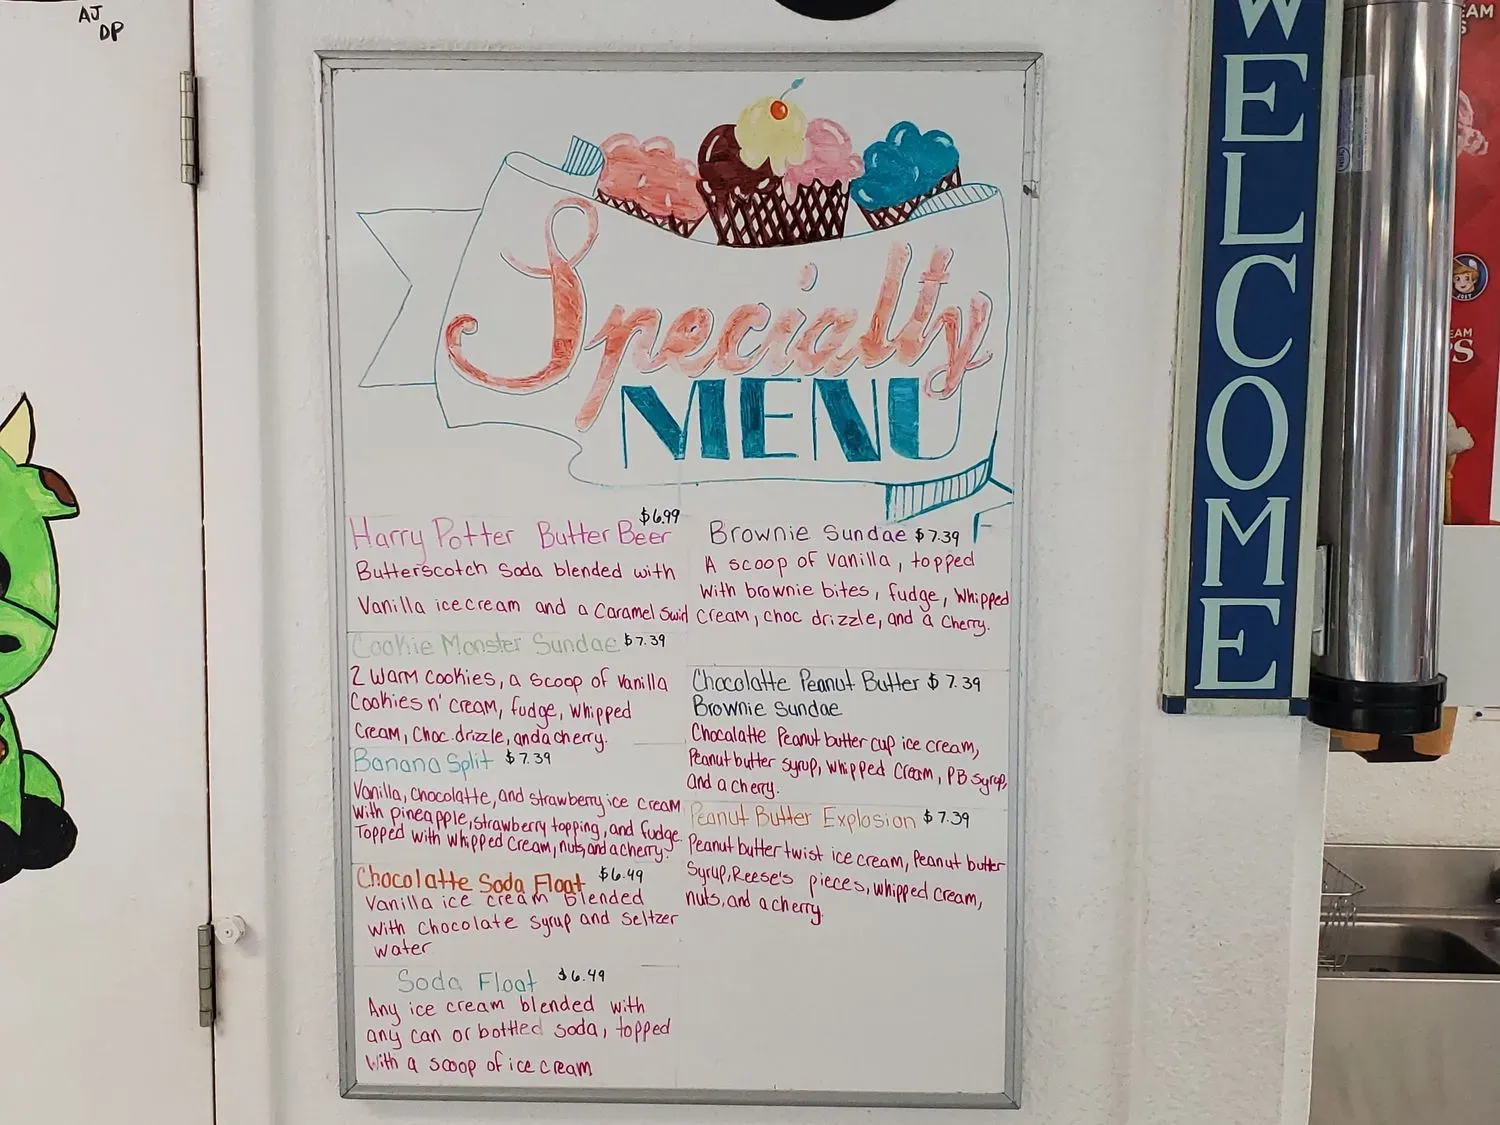 AJ
DP
WELCOME
Specialty
MENU
Harry Potter Butter Beer $6.99
Butterscotch Soda blended with
Vanilla ice cream and a Caramel Swirl
Cookie Monster Sundae $7.39
2 warm cookies, a scoop of vanilla
Cookies n' cream, fudge, whipped
Cream, choc. drizzle, and a cherry.
Banana Split $7.39
Vanilla, chocolatte, and strawberry ice cream
with pineapple, strawberry topping, and fudge.
Topped with whipped cream, nuts, and a cherry.
Chocolatte Soda Float $6.49
Vanilla ice cream blended
with chocolate syrup and seltzer
water
Soda Float $6.49
Any ice cream blended with
any can or bottled soda, topped
with a scoop of ice cream
Brownie Sundae $7.39
A scoop of vanilla, topped
with brownie bites, fudge, whipped
cream, choc drizzle, and a cherry.
Chocolatte Peanut Butter $7.39
Brownie Sundae
Chocalatte Peanut butter cup ice cream,
Peanut butter syrup, whipped cream, PB syrup,
and a cherry.
Peanut Butter Explosion $7.39
Peanut butter twist ice cream, Peanut butter
Syrup, Reese's pieces, whipped cream,
nuts, and a cherry.
JOEY